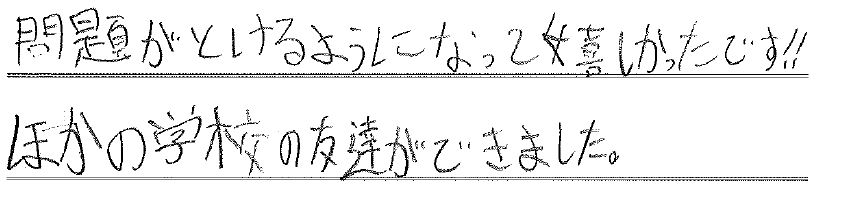 問題がとけるようになって嬉しかったです!!
ほかの学校の友達ができました。